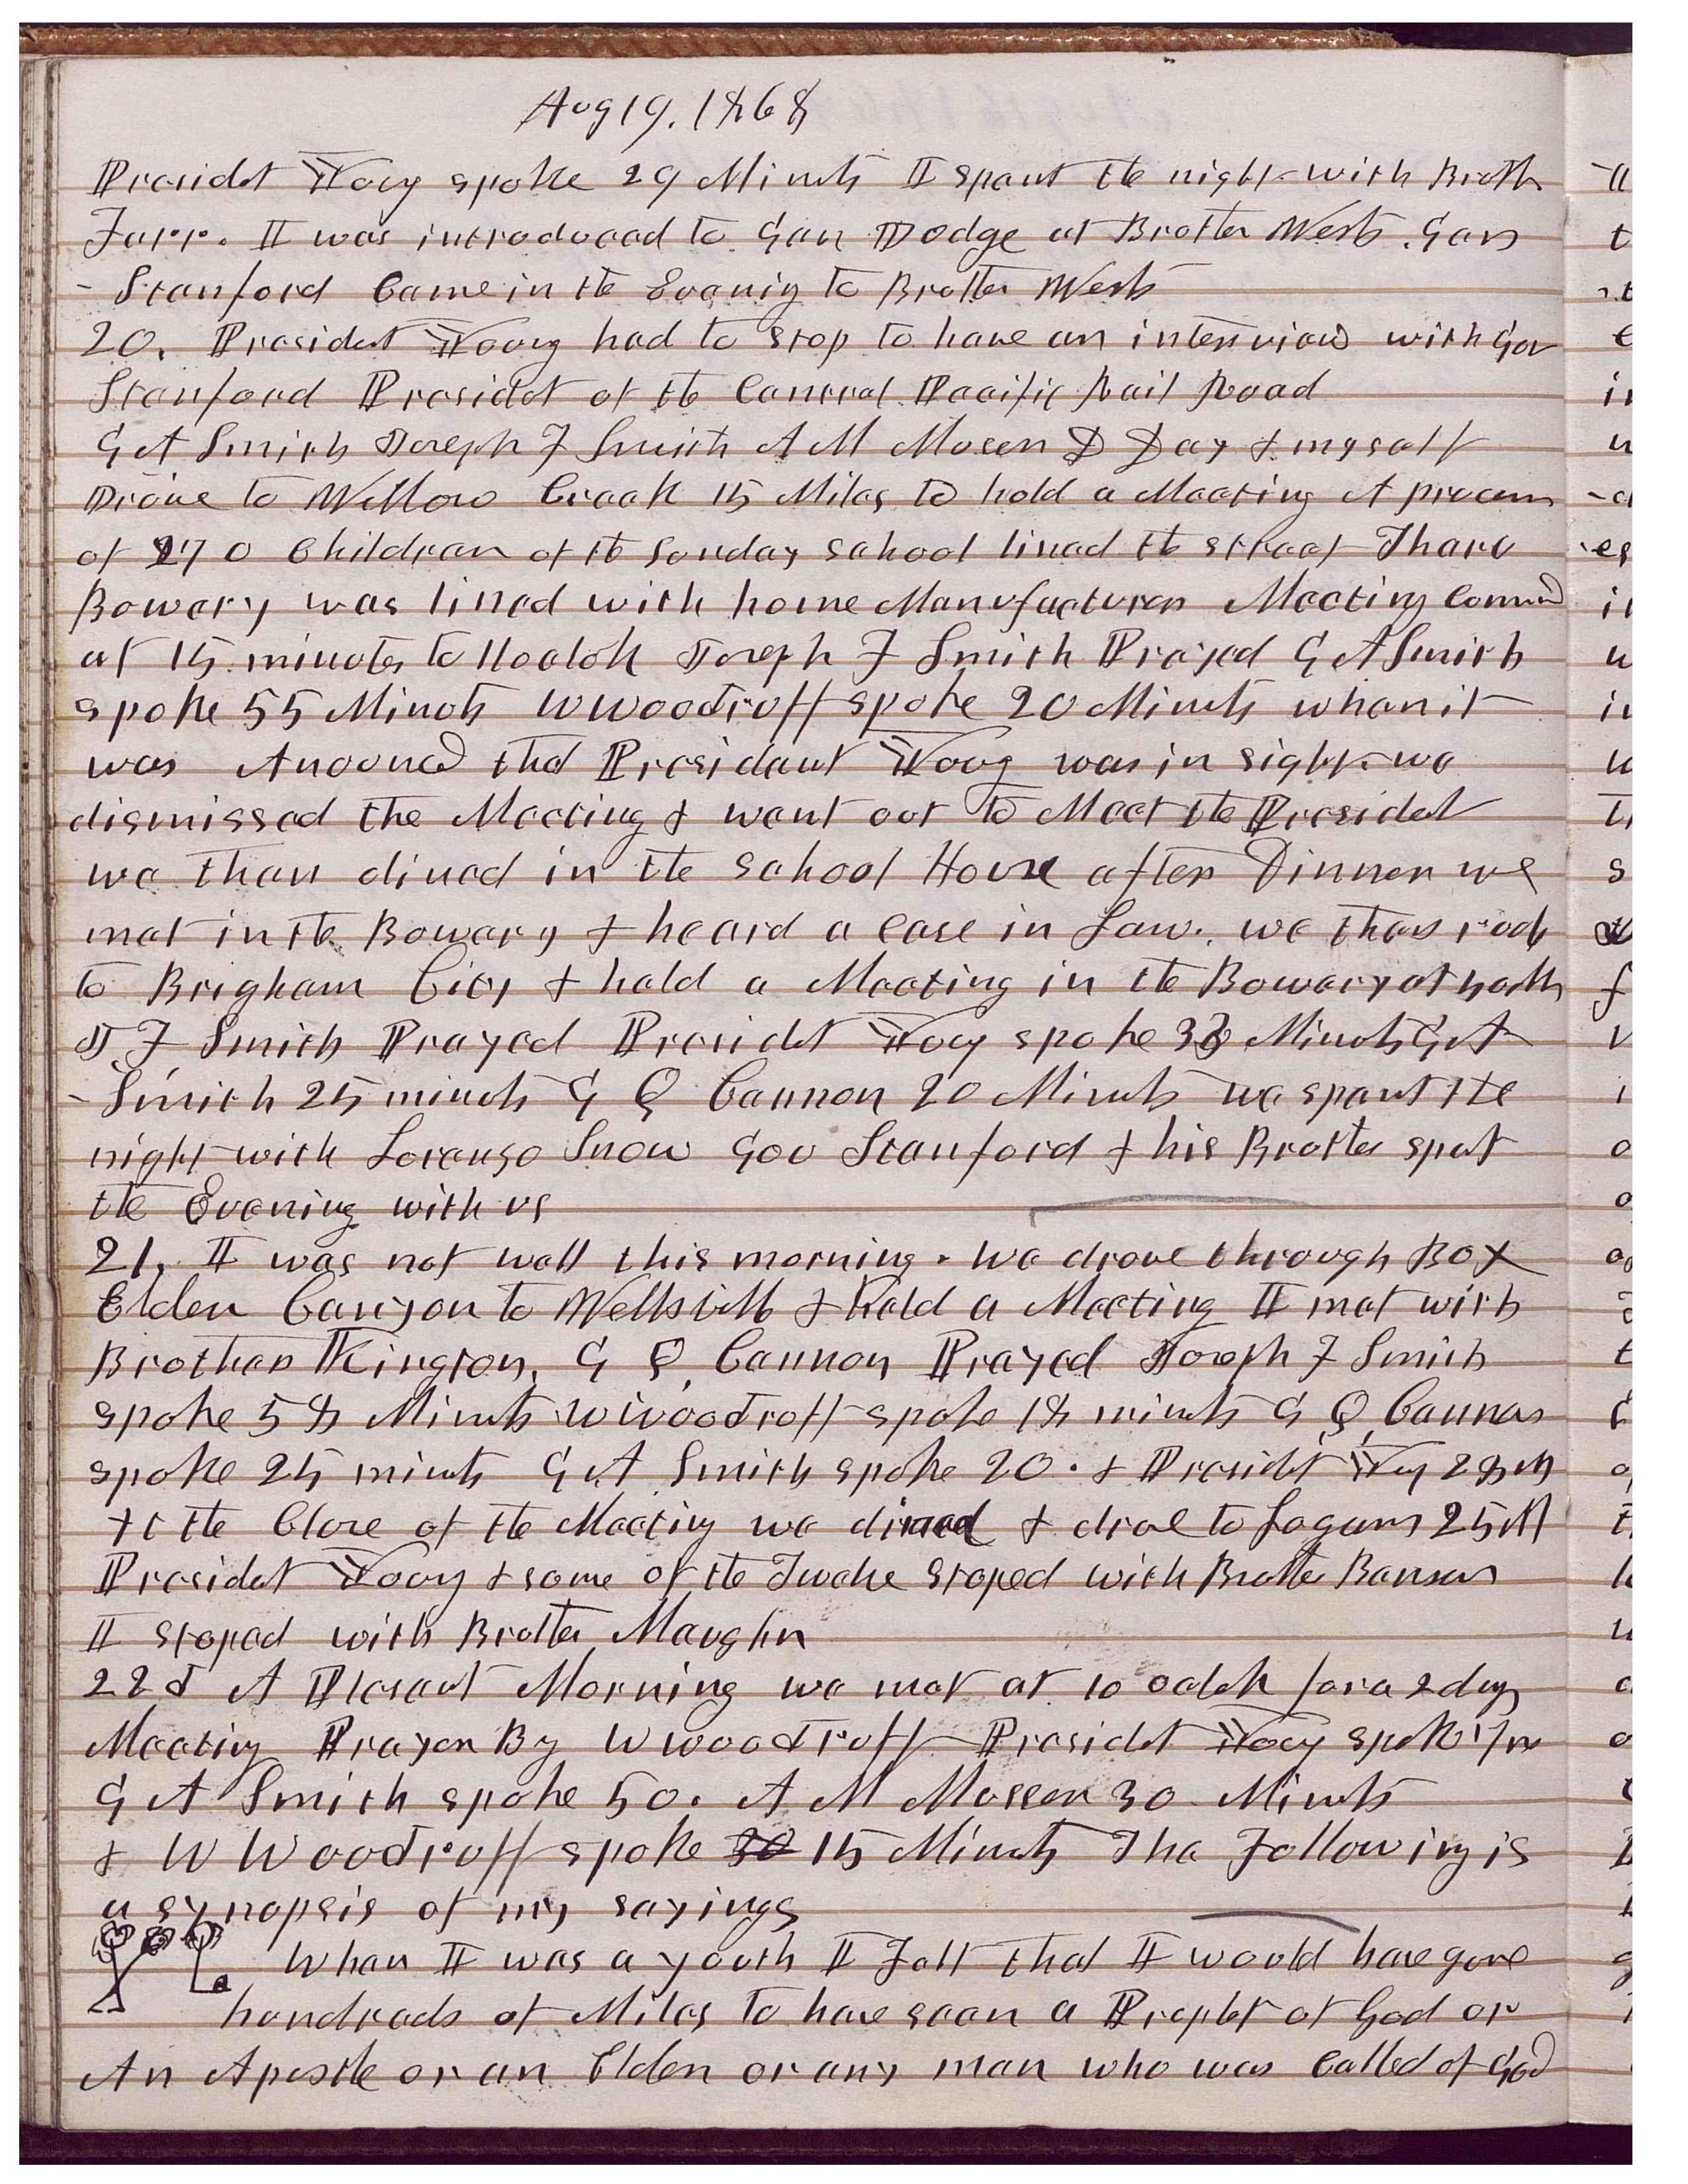 Aug 19. 1868
Presidet Young spoke 29 Minuts I spent the night with Brothr
Farr. I was introduced to Gen Dodge at Brother Wests. Gov
- Stanford Came in the Evenig to Brother Wests
20. President Young had to stop to have an interview with Gov
Stanford Presidet of the Central Pacific Rail Road
G A Smith Joseph F Smith A M Musser D Day & myself
Drove to Willow Creek 15 Miles to hold a Meeting A procem
of 270 Children of the Sunday School lined the street Thare
Bowery was lined with home Manufactures Meeting Commed
at 15 minutes to 11 oclok Joseph F Smith Prayed G A Smith
spoke 55 Minuts W Woodruff spoke 20 Minuts when it
was Anounced that President Young was in sight we
dismissed the Meeting & went out to Meet the Presidet
we then dined in the School House after Dinner we
met in the Bowery & heard a case in Law. we then rode
to Brigham City & held a Meeting in the Bowery at
J. F Smith Prayed Presidet Young spoke 33 Minuts G A
- Smith 25 minuts G Q Cannon 20 Minuts we spent the
night with Lorenzo Snow Gov Stanford & his Brother spent
the Evening with us
21. I was not well this morning. we drove through Box
Elder Canyon to Wellsville & held a Meeting I met with
Brother Kington. G Q. Cannon Prayed Joseph F Smith
spoke 58 Minuts W Woodruff spoke 18 minuts G Q. Cannon
spoke 25 minuts G A Smith spoke 20. & Presidet Yug 28 M
At the Close of the Meeting we dined & drove to Logan 25 M
Presidet Young & some of the Twelve Stoped with Brother Benson
I stoped with Brother Maughn
22d A Plesant Morning we met at 10 oclok for a 2 days
Meeting Prayer By W Woodruff Presidet Young spoke
G A Smith spoke 50. A M Musser 30 Minuts
& W Woodruff spoke 30 15 Minuts The Following is
a synopsis of my sayings
When I was a youth I Felt that I would have gone
hundreds of Miles to have seen a Prophet of God or
An Apostle or an Elder or any man who was Called of God